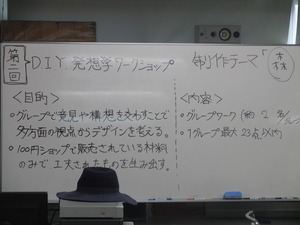 第二回
DIY 発想学ワークショップ
制作テーマ「森」
＜目的＞
・グループで発見や構想を交わすことで
多方面の視点からデザインを考える。
・100円ショップで販売されている材料
のみで工夫されたものを生み出す。
＜内容＞
・グループワーク (約2
・1グループ最大 23点以内